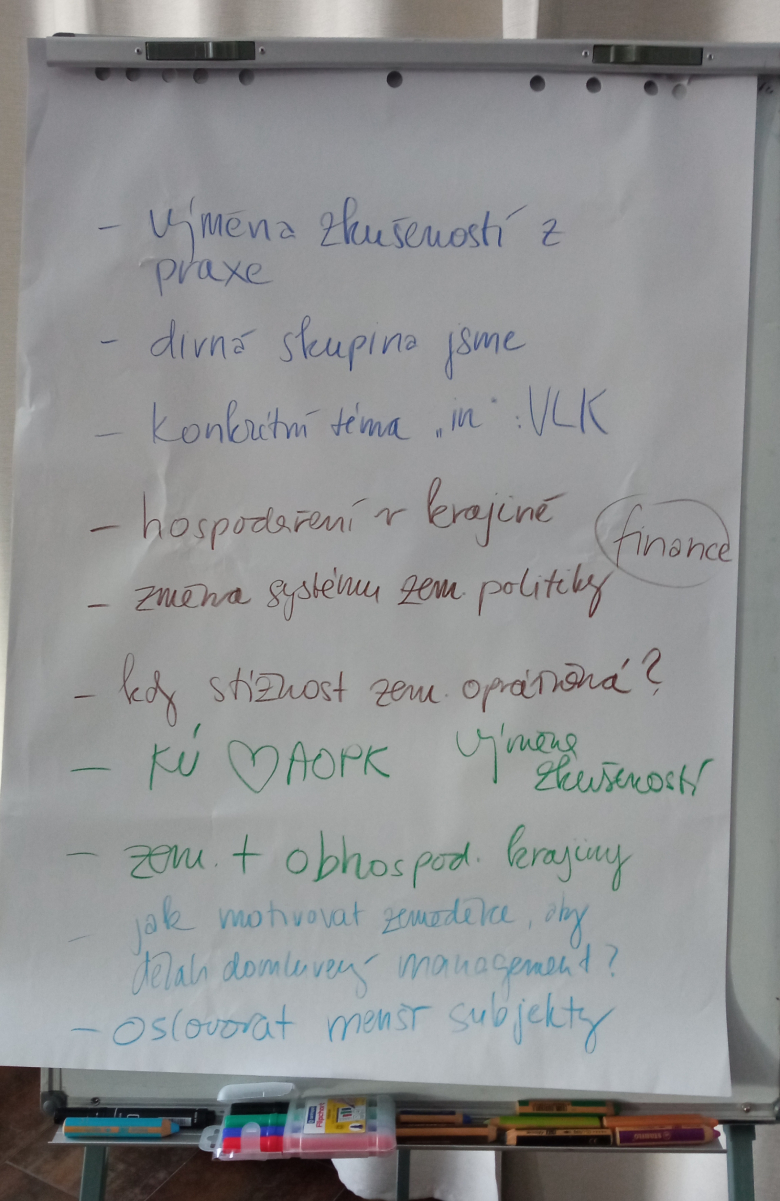 - Výměna zkušeností z
praxe
- divná skupina jsme
- konkrétní téma „in“: VLK
- hospodaření v krajině
finance
- změna systému zem. politiky
- kdy stížnost zem. oprávněná?
- KÚ ♡ AOPK Výměna
zkušeností
- zem. + obhospod. krajiny
- jak motivovat zemědělce, aby
dělali domluvený management?
- oslovovat menší subjekty